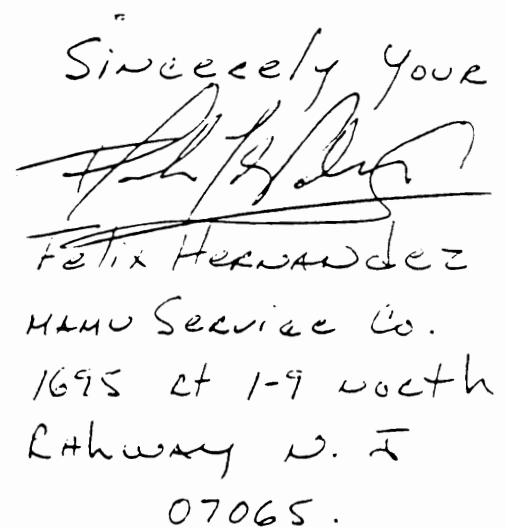 Sincerely Your
Felix Hernandez
MAMU Service Co.
1695 Rt 1-9 North
Rahway N. J
07065.